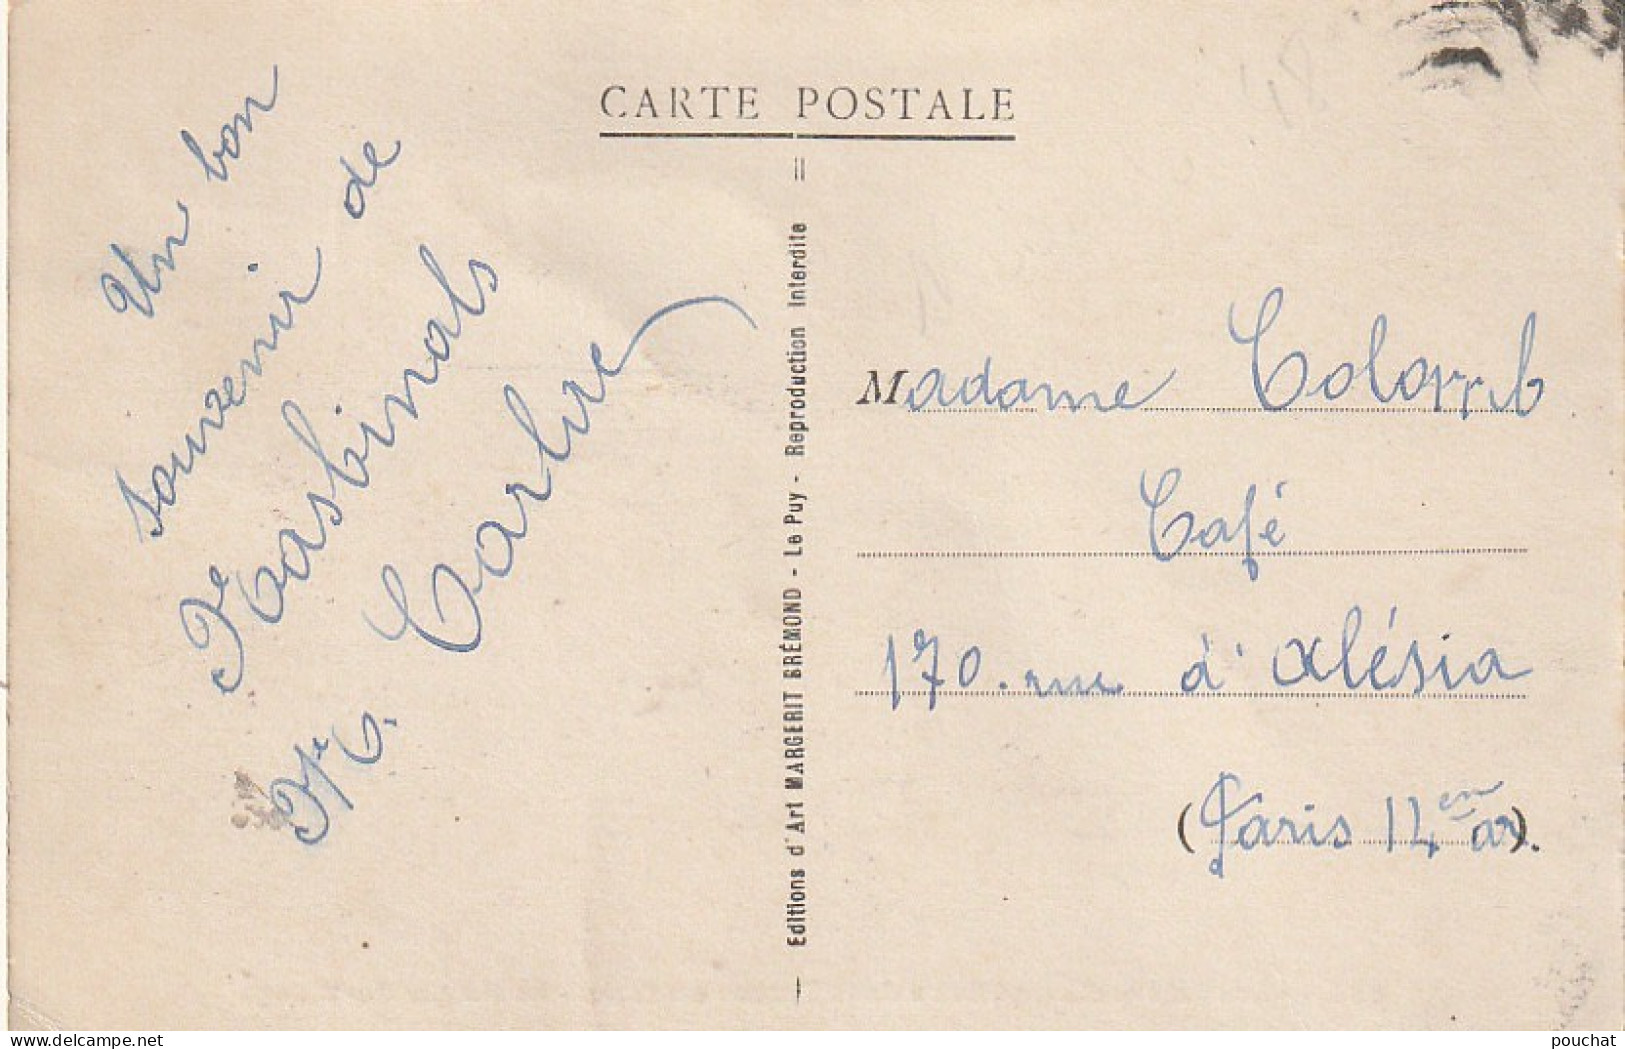 CARTE POSTALE
Un bon
souvenir de
Nasbinals
Editions d'Art MARGERIT BRÉMOND - Le Puy - Reproduction Interdite
Madame Colomb
Café
170. rue d'Alésia
(Paris 14em ar).
delcampe.net
pouchat